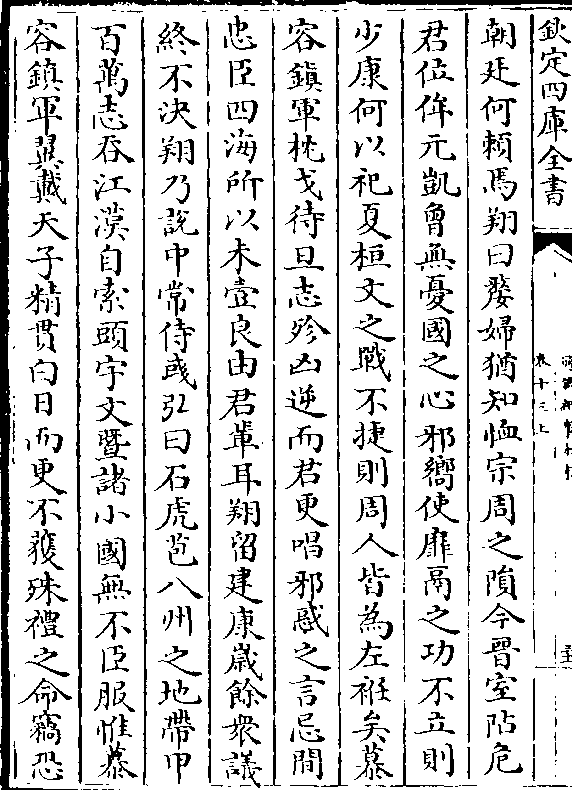 欽定四庫全書
朝廷何賴焉翔曰嫠婦猶知恤宗周之隕今晉室阽危
君位侔元凱曾無憂國之心邪嚮使靡鬲之功不立則
少康何以祀夏桓文之戰不捷則周人皆為左袵矣慕
容鎮軍枕戈待旦志殄凶逆而君更唱邪惑之言忌間
忠臣四海所以未壹良由君輩耳翔留建康歲餘衆議
終不決翔乃說中常侍彧弘曰石虎苞八州之地帶甲
百萬志吞江漢自索頭宇文暨諸小國無不臣服惟慕
容鎮軍翼戴天子精貫白日而更不獲殊禮之命竊恐